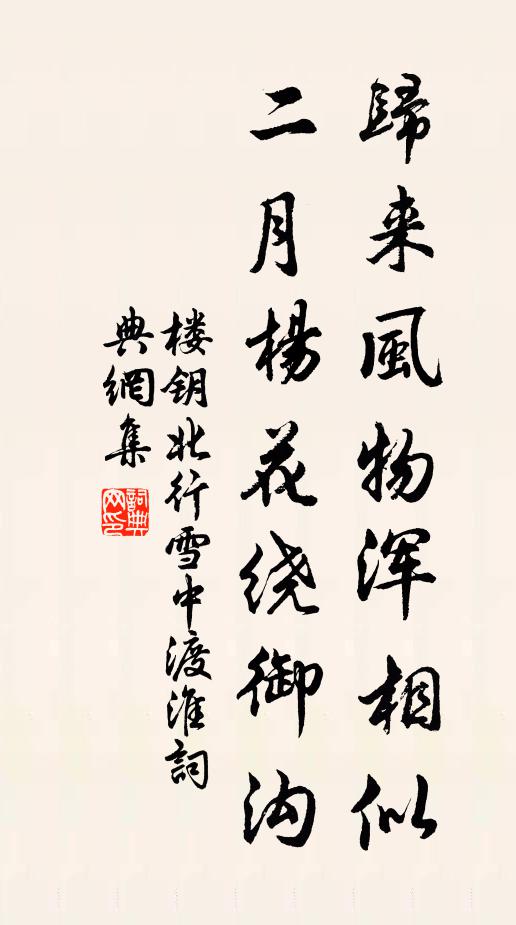 歸来風物浑相似
二月楊花绕御沟
楼钥北行雪中渡淮詞
典網集
詞典网印